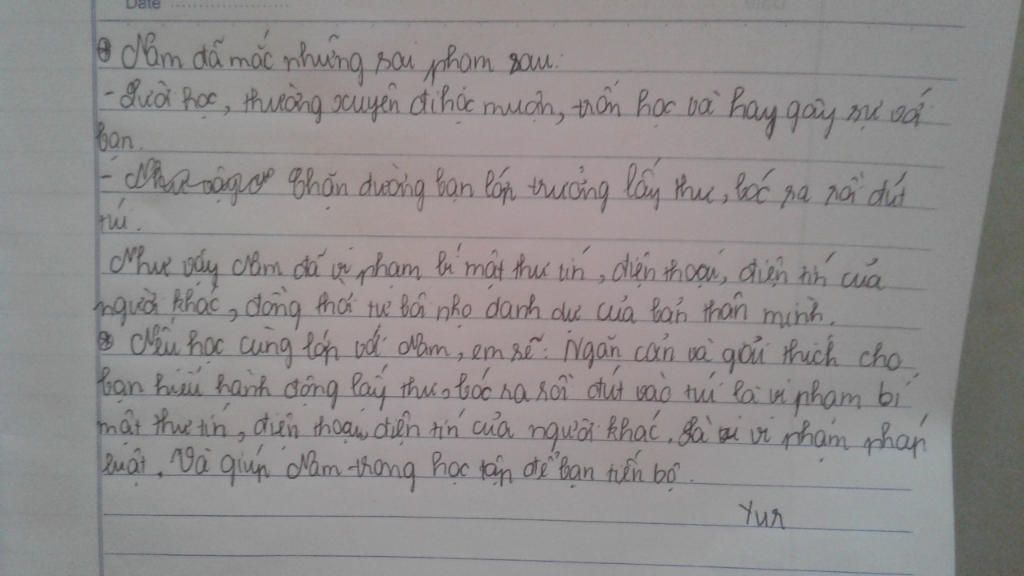 Date
Nam đã mắc những sai phạm sau:
- Lười học, thường xuyên đi học muộn, trốn học và hay gây sự với
bạn.
- Chặn đường bạn lớp trưởng lấy thư, bóc ra rồi đút
túi.
Như vậy Nam đã vi phạm bí mật thư tín, điện thoại, điện tín của
người khác, đồng thời tự bôi nhọ danh dự của bản thân mình.
Nếu học cùng lớp với Nam, em sẽ: Ngăn cản và giải thích cho
bạn hiểu hành động lấy thư, bóc ra rồi đút vào túi là vi phạm bí
mật thư tín, điện thoại, điện tín của người khác. Là vi phạm pháp
luật. Và giúp Nam trong học tập để bạn tiến bộ.
Yur